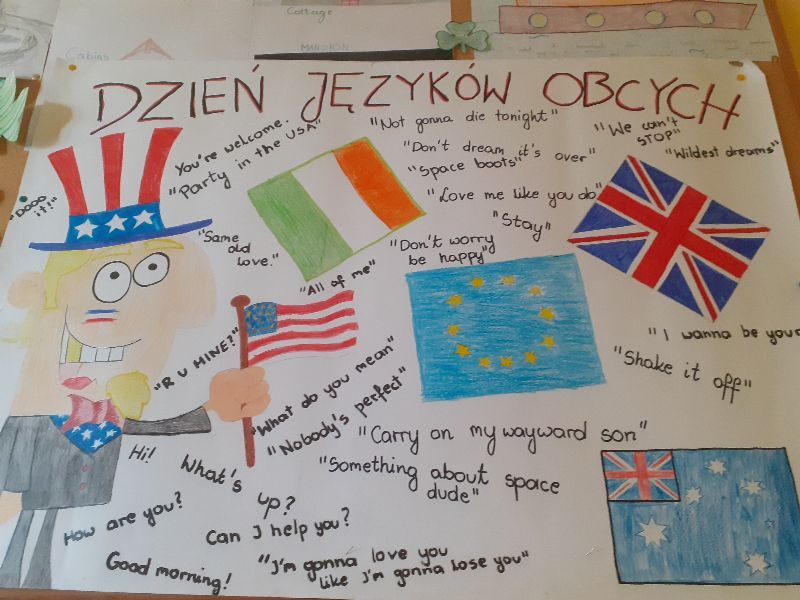 Cottage
Cabins
MANSION
DZIEŃ JĘZYKÓW OBCYCH
You're welcome.
"Party in the USA"
"Not gonna die tonight"
"We can't
STOP"
"Don't dream it's over"
"Wildest dreams"
"Space boots"
"Dooo
it!"
"Love me like you do"
"Stay"
"Same
old
love."
"Don't worry
be happy"
"All of me"
"I wanna be yours
"R U MINE?"
"Shake it off"
"What do you mean"
"Nobody's perfect"
"Carry on my wayward son"
"Something about space
dude"
Hi!
What's
up?
How are you?
Can I help you?
Good morning!
"I'm gonna love you
like I'm gonna lose you"